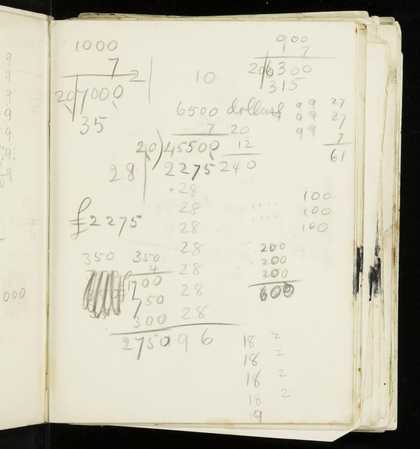 1000
7
20 7000 2
35
900
7
20 6300
315
10
6500 dollars
7
20) 45500
2275
20
12
240
99 27
99 27
99 7
61
28
28
28
28
28
28
28
28
96
£2275
350 350
4
1700
750
300
2750
100
100
100
200
200
200
600
18 2
18 2
18 2
18 2
9
9
9
9
9
9
9
000